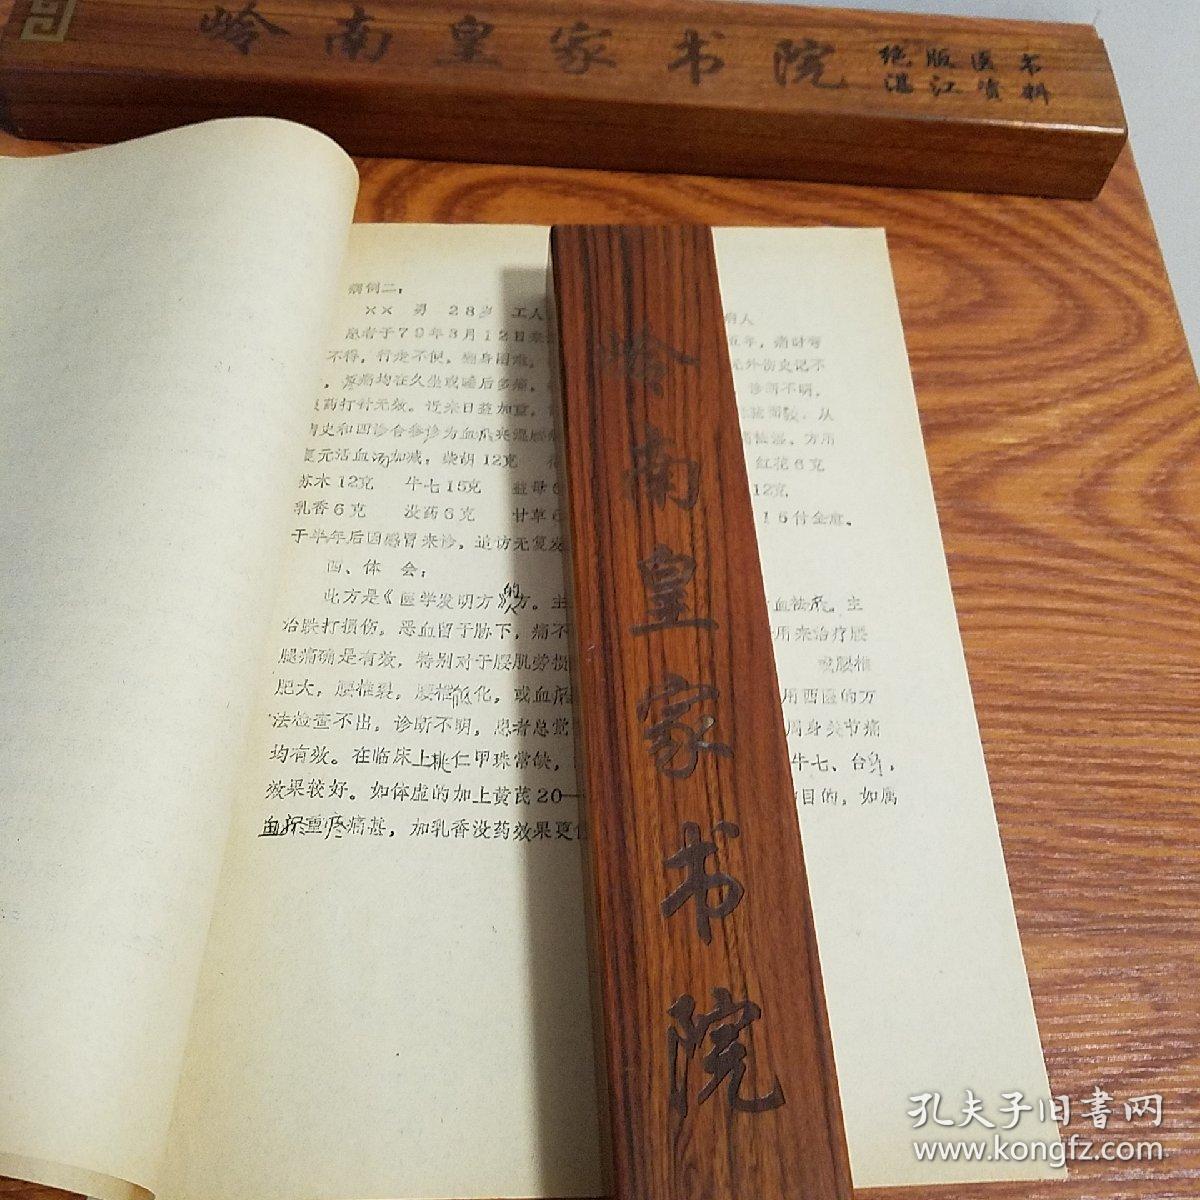 岭南皇家书院
绝版医书
湛江资料
病例二：
×× 男 28岁 工人 病人
患者于79年3月12日来 近年，痛时弯
不得，行走不便，翻身困难， 无外伤史记不
，疼痛均在久坐或睡后多痛， 诊断不明，
药打针无效。近来日益加重，
病史和四诊合参诊为血瓜夹湿腰
复元活血汤加减：柴胡12克 红花6克
苏木12克 牛七15克 益母 12克
乳香6克 没药6克 甘草6 16付全愈。
于半年后因感冒来诊，追访无复发
四、体 会：
此方是《医学发明方》的方。主 血祛瘀。主
治跌打损伤。恶血留于胁下，痛不 用来治疗腰
腿痛确是有效，特别对于腰肌劳损 或腰椎
肥大，腰椎裂，腰椎骶化，或血瘀 用西医的方
法检查不出，诊断不明，患者总觉 周身关节痛
均有效。在临床上桃仁甲珠常缺， 牛七、台乌，
效果较好。如体虚的加上黄芪20— 的目的，如属
血瘀重疼痛甚，加乳香没药效果更
岭南皇家书院
孔夫子旧书网
www.kongfz.com